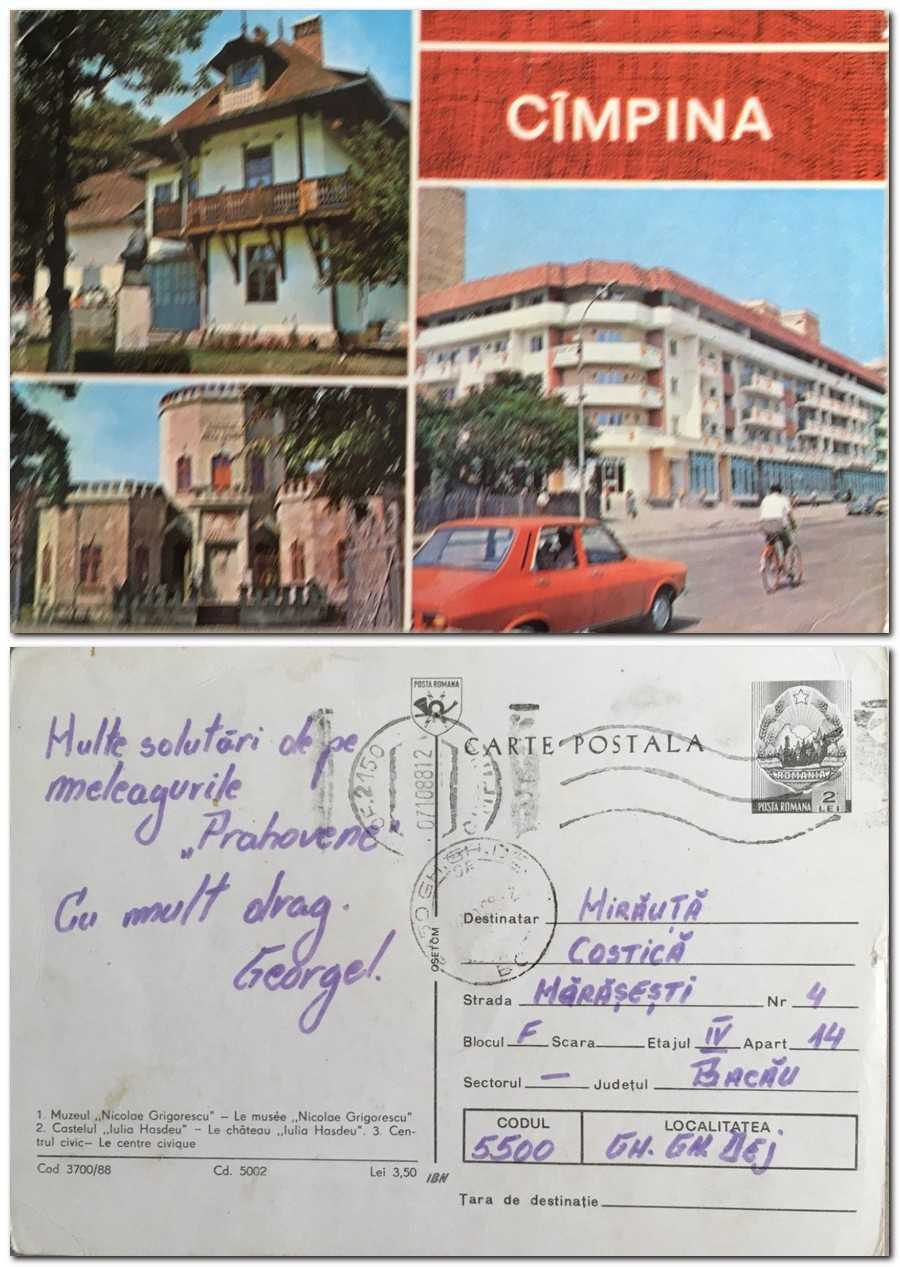 CÎMPINA
POSTA ROMANA
CARTE POSTALA
ROMANIA
POSTA ROMANA 2 LEI
OF.2150
07108812
Multe solutări de pe
meleagurile
„Prahovene"
Cu mult drag.
Georgel.
OSETOM
Destinatar MIRĂUȚĂ
COSTICĂ
Strada MĂRĂȘEȘTI Nr 4
Blocul F Scara Etajul IV Apart 14
Sectorul — Județul BACĂU
CODUL LOCALITATEA
5500 GH. GH. DEJ
Țara de destinație
1. Muzeul „Nicolae Grigorescu" – Le musée „Nicolae Grigorescu"
2. Castelul „Iulia Hasdeu" – Le château „Iulia Hasdeu". 3. Cen-
trul civic– Le centre civique
Cod 3700/88 Cd. 5002 Lei 3,50
IBN